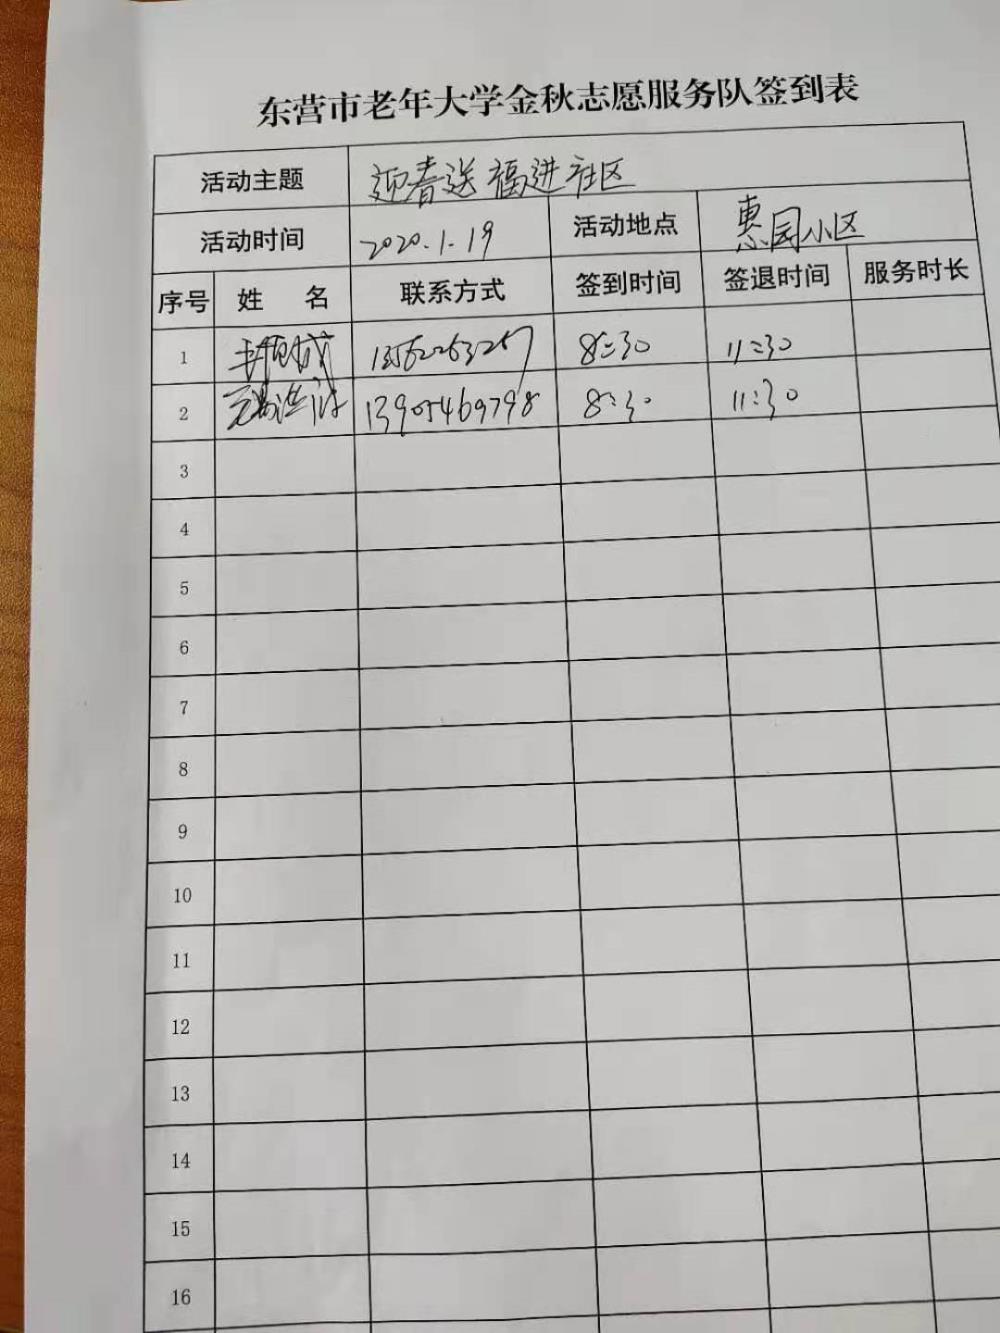 东营市老年大学金秋志愿服务队签到表
活动主题 迎春送福进社区
活动时间 2020.1.19 活动地点 惠园小区
序号 姓名 联系方式 签到时间 签退时间 服务时长
1 8:30 11:30
2 13905469798 8:30 11:30
3
4
5
6
7
8
9
10
11
12
13
14
15
16